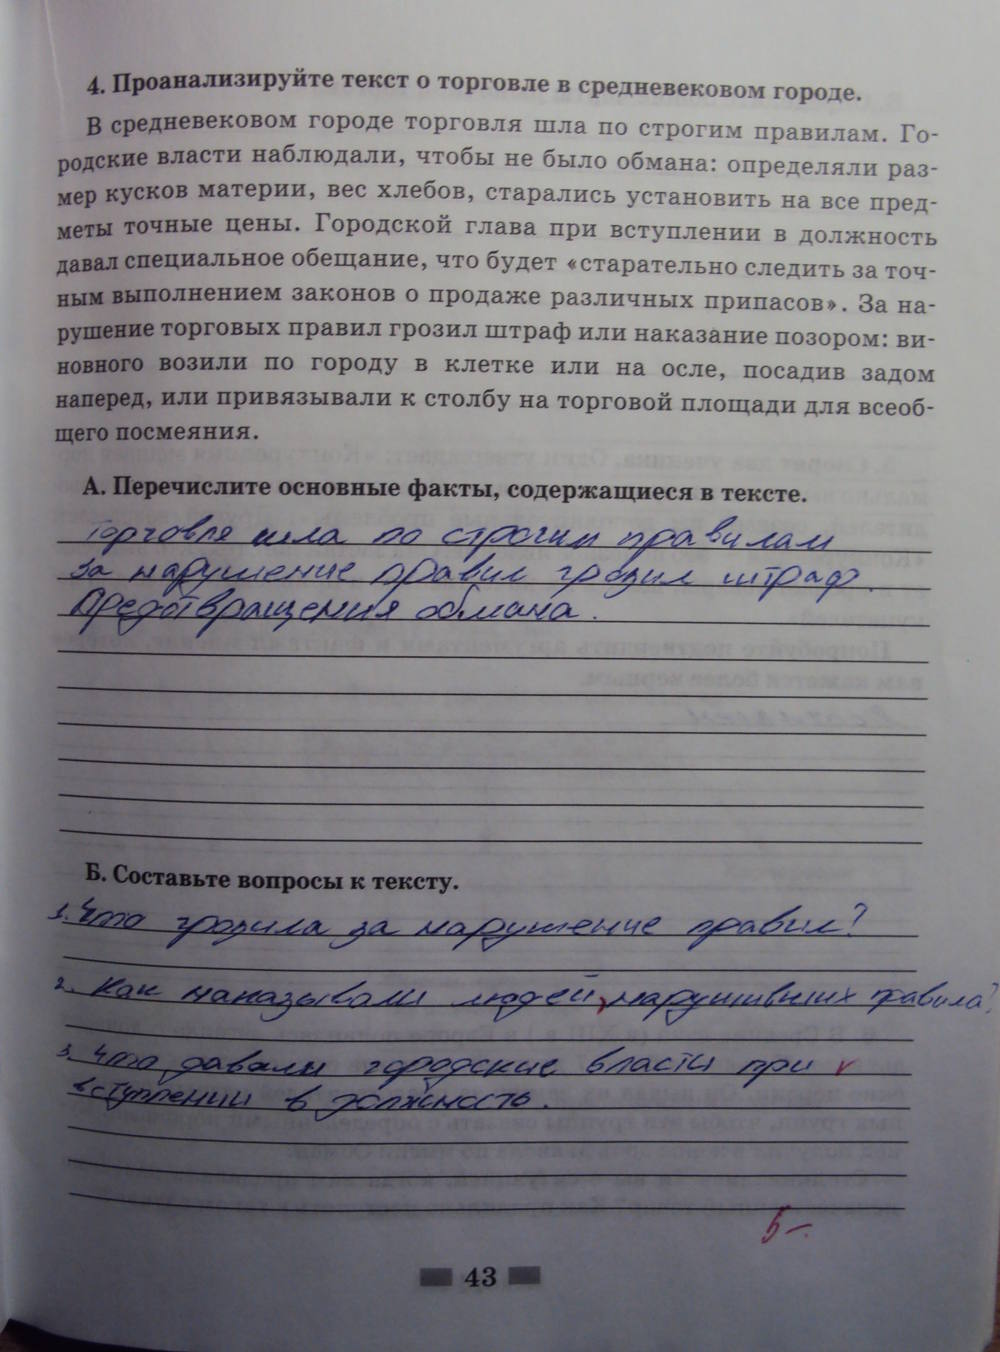 4. Проанализируйте текст о торговле в средневековом городе.
В средневековом городе торговля шла по строгим правилам. Го-
родские власти наблюдали, чтобы не было обмана: определяли раз-
мер кусков материи, вес хлебов, старались установить на все пред-
меты точные цены. Городской глава при вступлении в должность
давал специальное обещание, что будет «старательно следить за точ-
ным выполнением законов о продаже различных припасов». За на-
рушение торговых правил грозил штраф или наказание позором: ви-
новного возили по городу в клетке или на осле, посадив задом
наперед, или привязывали к столбу на торговой площади для всеоб-
щего посмеяния.
А. Перечислите основные факты, содержащиеся в тексте.
Торговля шла по строгим правилам
За нарушение правил грозил штраф.
Предотвращения обмана.
Б. Составьте вопросы к тексту.
1. Что грозила за нарушение правил?
2. Как наказывали людей, нарушивших правила?
3. Что давали городские власти при
вступлении в должность.
5-.
43